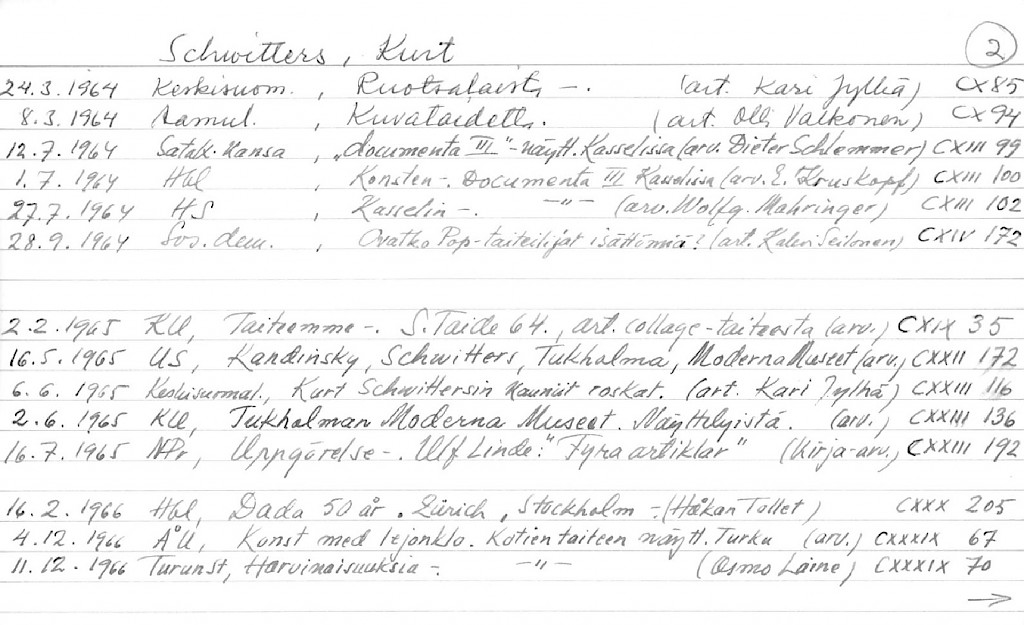 Schwitters, Kurt 2
24.3.1964 Keskisuom., Ruotsalaist. -. (art. Kari Jylhä) CX 85
8.3.1964 Aamul., Kuvataidett. (art. Olli Valkonen) CX 94
12.7.1964 Satak. Kansa, "documenta III"-näytt. Kasselissa (arv. Dieter Schlemmer) CXIII 99
1.7.1964 Hbl, Konsten -. Documenta III Kasselissa (arv. E. Kruskopf) CXIII 100
27.7.1964 HS, Kasselin -. -"- (arv. Wolfg. Mahringer) CXIII 102
28.9.1964 Sos.dem., Ovatko Pop-taiteilijat isättömiä? (art. Kalevi Seilonen) CXIV 172
2.2.1965 KU, Taiteemme -. S. Taide 64., art. collage-taiteesta (arv.) CXIX 35
16.5.1965 US, Kandinsky, Schwitters, Tukholma, Moderna Museet (arv.) CXXII 172
6.6.1965 Keskisuomal., Kurt Schwittersin kauniit roskat. (art. Kari Jylhä) CXXIII 116
2.6.1965 KU, Tukholman Moderna Museet. Näyttelyistä. (arv.) CXXIII 136
16.7.1965 NPr, Uppgörelse -. Ulf Linde: "Fyra artiklar" (Kirja-arv.) CXXIII 192
16.2.1966 Hbl, Dada 50 år. Zürich, Stockholm -. (Håkan Tollet) CXXX 205
4.12.1966 ÅU, Konst med. Kotien taiteen näytt. Turku (arv.) CXXXIX 67
11.12.1966 Turunst, Harvinaisuuksia -. -"- (Osmo Laine) CXXXIX 70
→